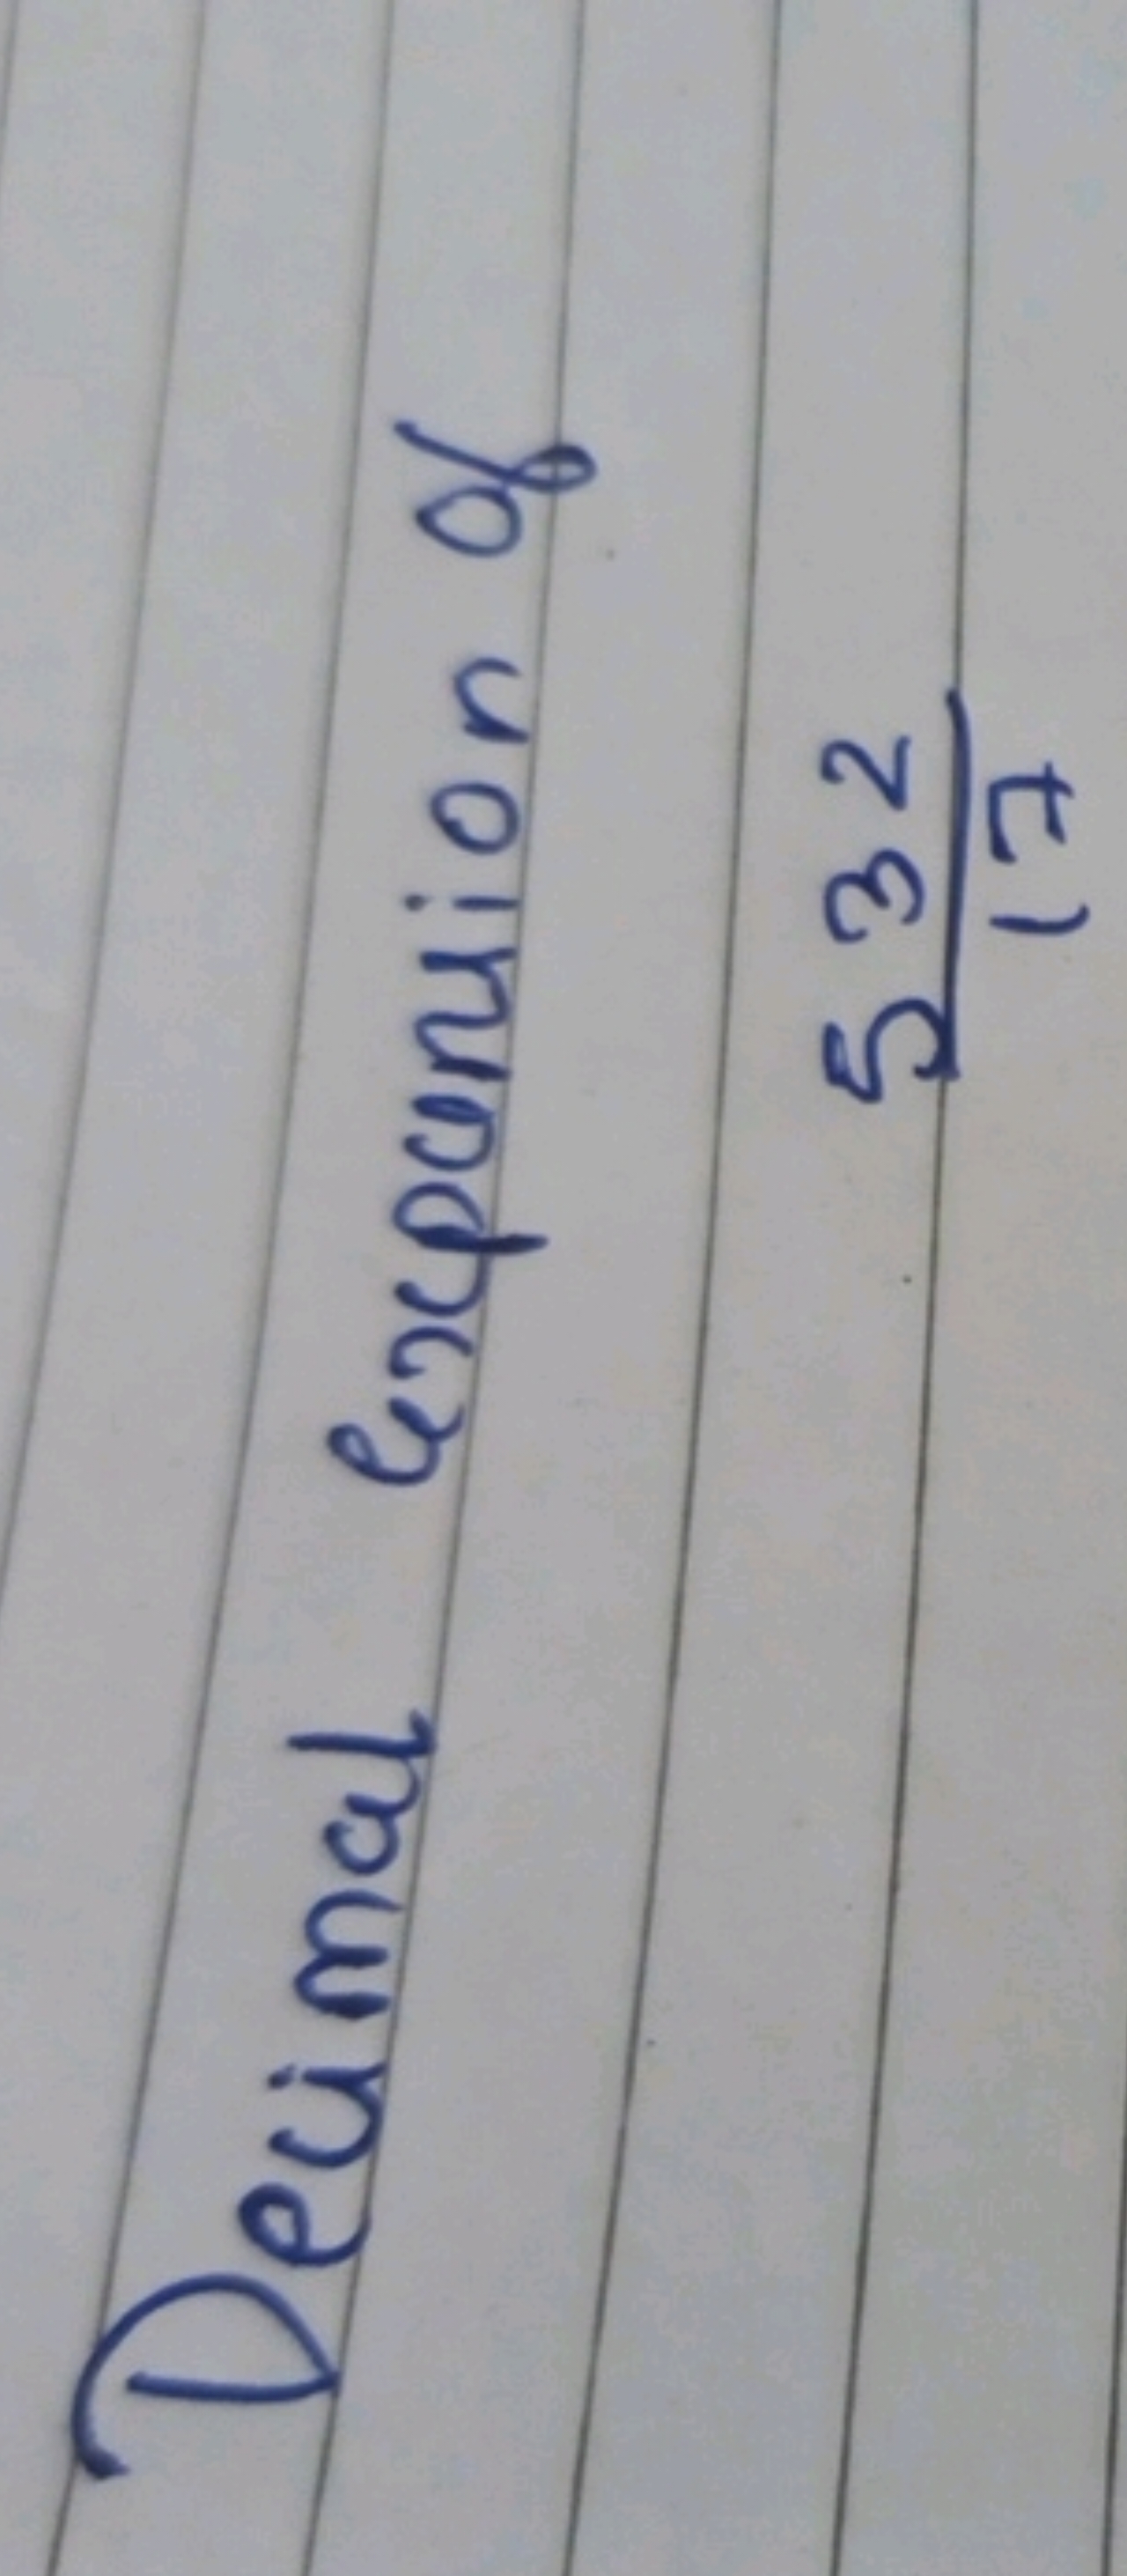 Decimal expansion of
532
17